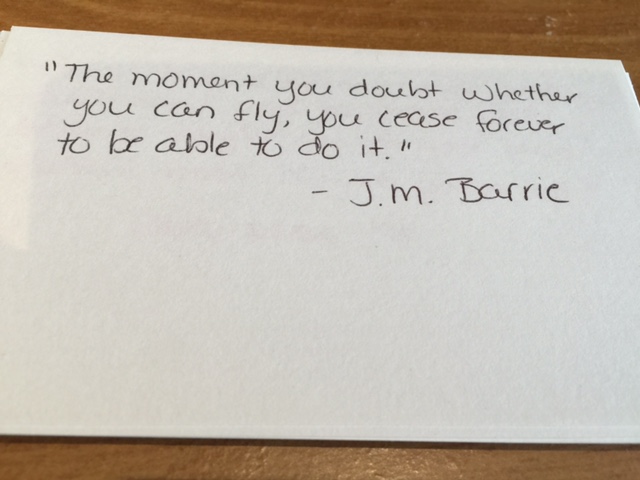 "The moment you doubt whether
you can fly, you cease forever
to be able to do it."
- J.M. Barrie